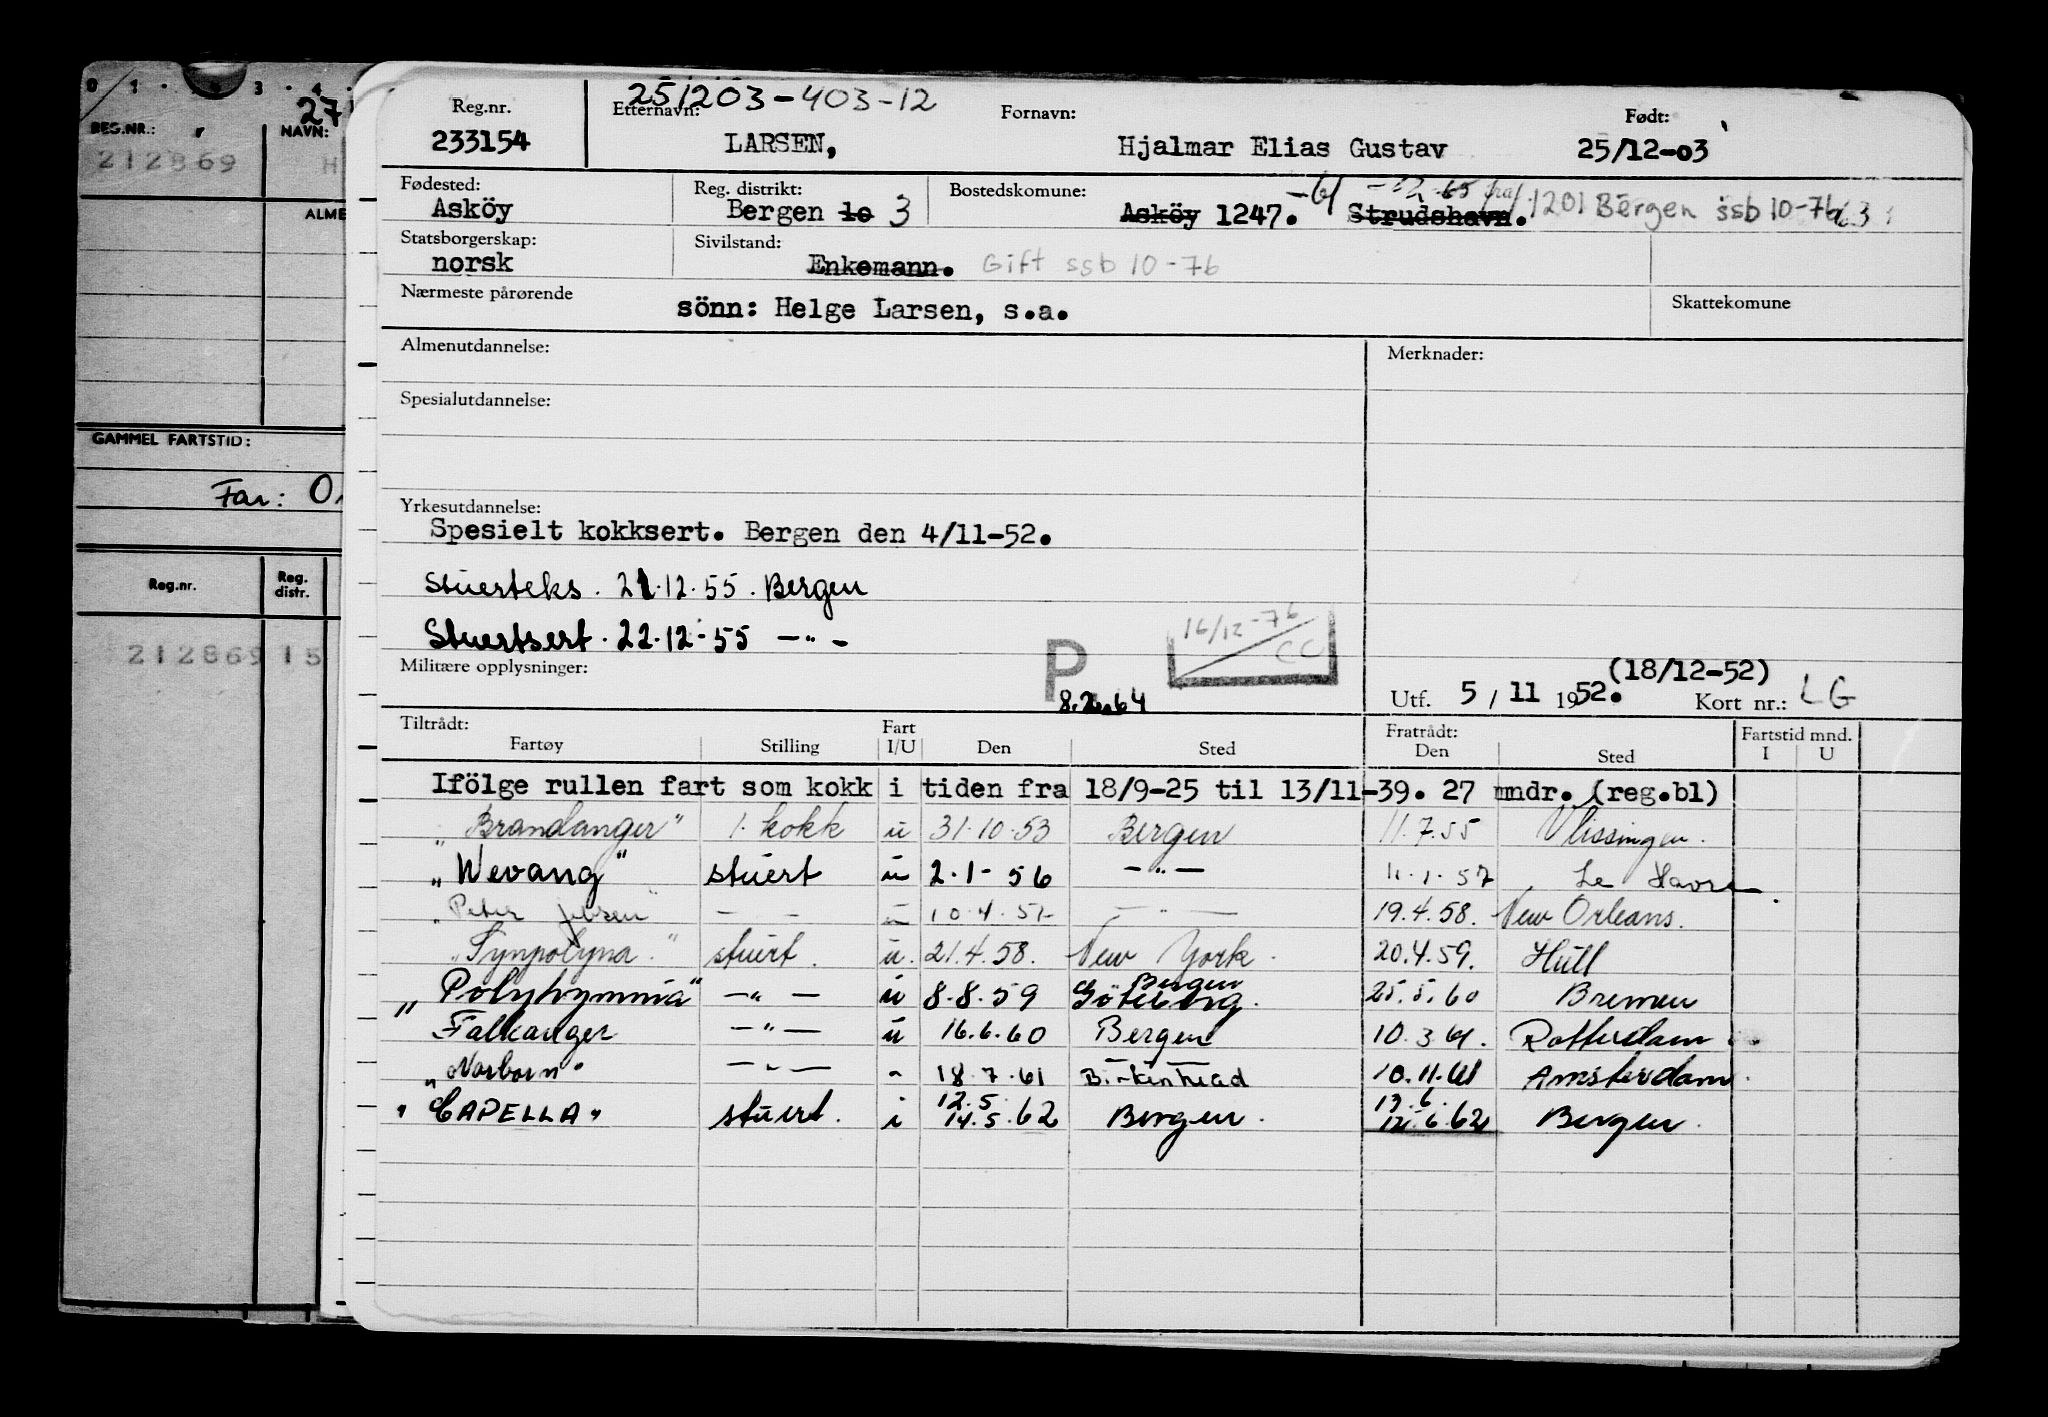 0 1 3 4
27
REG.NR.: NAVN:
212869 H
ALME
GAMMEL FARTSTID:
Far:
Reg.nr. Reg. distr.
212869 15
251203-403-12
Reg.nr. Etternavn: Fornavn: Født:
233154 LARSEN, Hjalmar Elias Gustav 25/12-03
Fødested: Reg. distrikt: Bostedskomune:
Asköy Bergen 1o 3 Asköy 1247. -61 Strudshavn. 1201 Bergen ssb 10-76
Statsborgerskap: Sivilstand:
norsk Enkemann. Gift ssb 10-76
Nærmeste pårørende Skattekomune
sönn: Helge Larsen, s.a.
Almenutdannelse: Merknader:
Spesialutdannelse:
Yrkesutdannelse:
Spesielt kokksert. Bergen den 4/11-52.
Stuerteks. 21.12.55. Bergen
Stuertsert. 22.12-55 -"-
P 16/12-76 CC
Militære opplysninger:
8.2.64
(18/12-52)
Utf. 5/11 1952. Kort nr.: LG
Tiltrådt: Fart Fratrådt: Fartstid mnd.
Fartøy Stilling I/U Den Sted Den Sted I U
Ifölge rullen fart som kokk i tiden fra 18/9-25 til 13/11-39. 27 mndr. (reg.bl)
"Brandanger" 1. kokk u 31.10.53 Bergen 11.7.55 Vlissingen.
"Wevang" stuert u 2.1-56 -"- 11.1.57 Le Havre
"Peter Jebsen" - - u 10.4.57 -"- 19.4.58. New Orleans.
"Synpolyna" stuert. u. 21.4.58. New York. 20.4.59. Hull
"Polyhymnia" -"- u 8.8.59 Göteborg. Bergen 25.5.60 Bremen
Falkanger -"- u 16.6.60 Bergen 10.3.61. Rotterdam
"Norborn" -"- - 18.7.61 Birkenhead 10.11.61 Amsterdam.
"CAPELLA" stuert. i 12.5. 14.5.62 Bergen. 13.6. 12.6.62 Bergen.